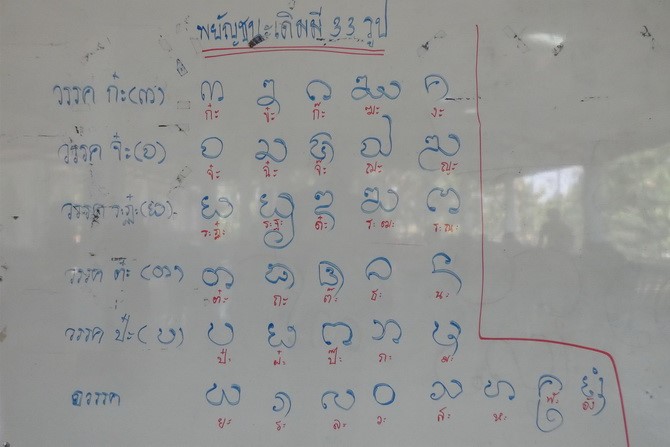 พยัญชนะเดิมมี 33 รูป
วรรค ก๋ะ(ᨠ) ᨠ ᨡ ᨣ ᨥ ᨦ
ก๋ะ ข๋ะ ก๊ะ ฆะ งะ
วรรค จ๋ะ(ᨧ) ᨧ ᨨ ᨩ ᨫ ᨬ
จ๋ะ ฉ๋ะ จ๊ะ ฌะ ญะ
วรรค ระฏ๋ะ(ᨭ) ᨭ ᨮ ᨯ ᨰ ᨱ
ระฏ๋ะ ระฐ๋ะ ด๋ะ ระฒะ ระณะ
วรรค ต๋ะ (ᨲ) ᨲ ᨳ ᨴ ᨵ ᨶ
ต๋ะ ถะ ต๊ะ ธะ นะ
วรรค ป๋ะ(ᨷ) ᨷ ᨹ ᨻ ᨽ ᨾ
ป๋ะ ผ๋ะ ป๊ะ ภะ มะ
อวรรค ᨿ ᩁ ᩃ ᩅ ᩈ ᩉ ᩊ
ยะ ระ ละ วะ ส๋ะ หะ ฬะ